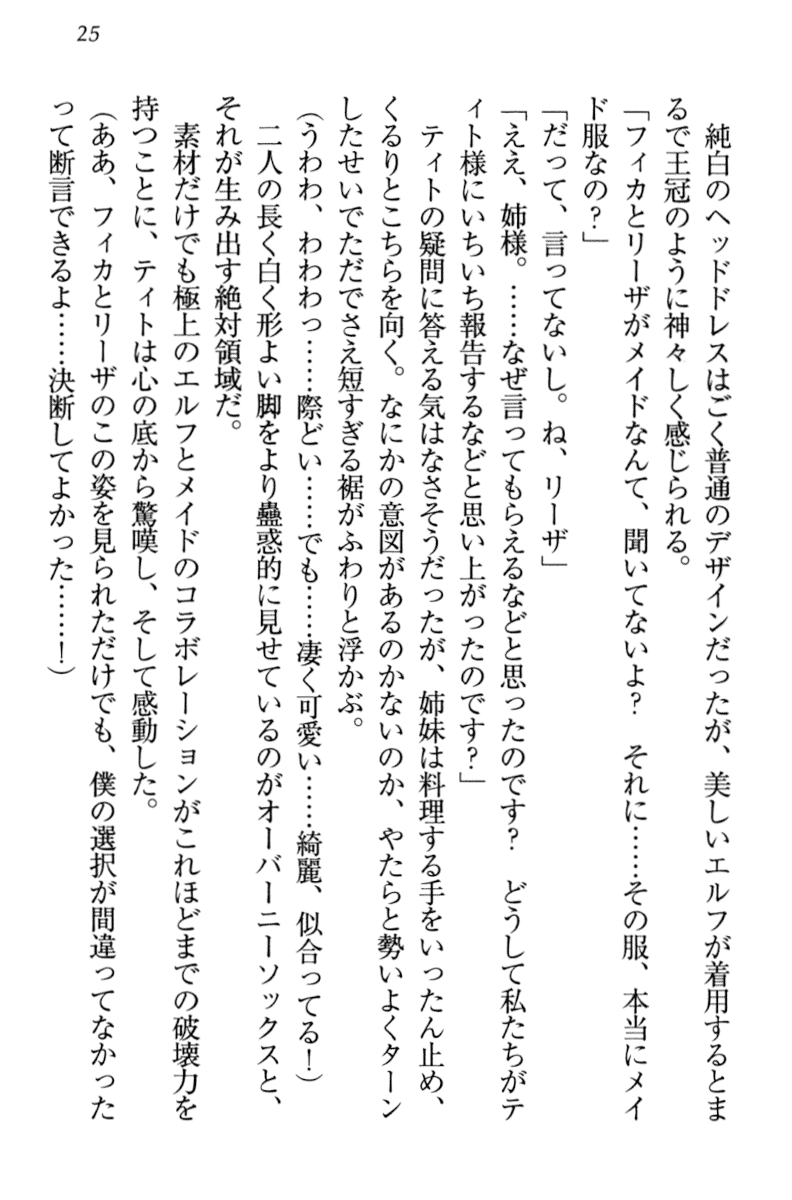 25
　純白のヘッドドレスはごく普通のデザインだったが、美しいエルフが着用するとま
るで王冠のように神々しく感じられる。
「フィカとリーザがメイドなんて、聞いてないよ？　それに……その服、本当にメイ
ド服なの？」
「だって、言ってないし。ね、リーザ」
「ええ、姉様。……なぜ言ってもらえるなどと思ったのです？　どうして私たちがテ
ィト様にいちいち報告するなどと思い上がったのです？」
　ティトの疑問に答える気はなさそうだったが、姉妹は料理する手をいったん止め、
くるりとこちらを向く。なにかの意図があるのかないのか、やたらと勢いよくターン
したせいでただでさえ短すぎる裾がふわりと浮かぶ。
（うわわ、わわわっ……際どい……でも……凄く可愛い……綺麗、似合ってる！）
　二人の長く白く形よい脚をより蠱惑的に見せているのがオーバーニーソックスと、
それが生み出す絶対領域だ。
　素材だけでも極上のエルフとメイドのコラボレーションがこれほどまでの破壊力を
持つことに、ティトは心の底から驚嘆し、そして感動した。
（ああ、フィカとリーザのこの姿を見られただけでも、僕の選択が間違ってなかった
って断言できるよ……決断してよかった……！）